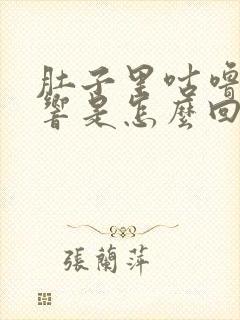 肚子里咕噜
響是怎麼回
張蘭萍